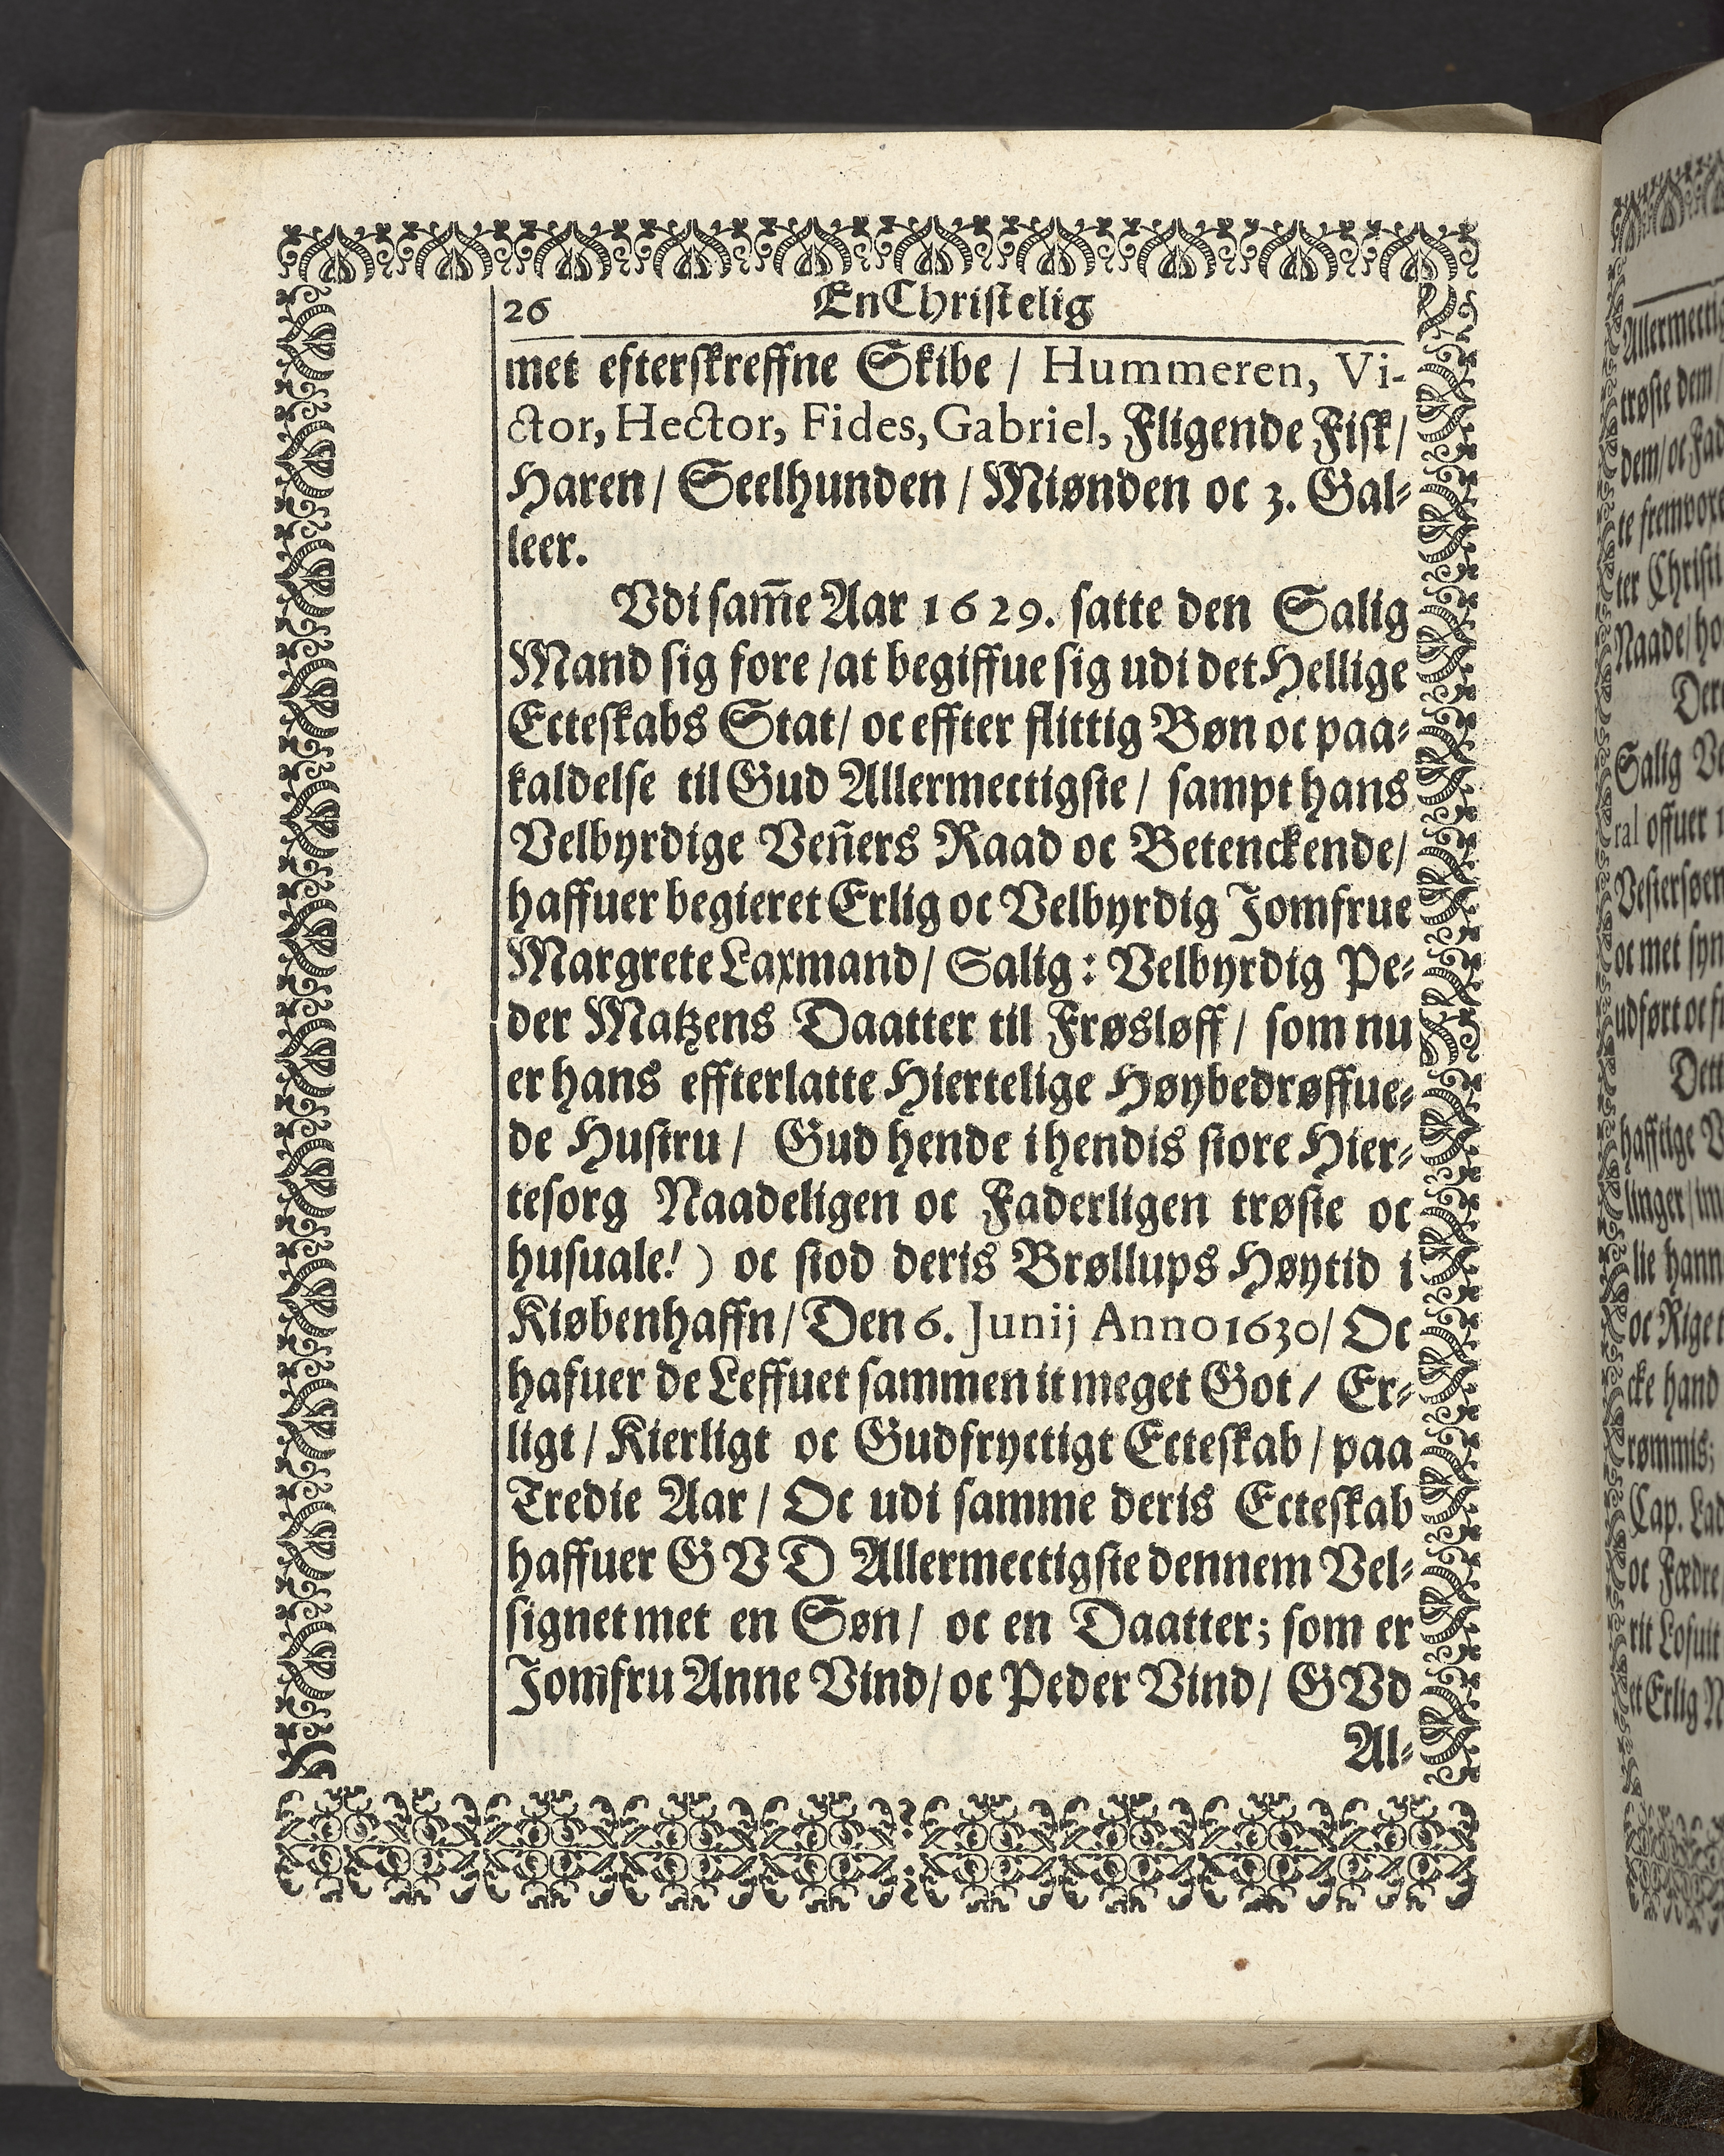 26 En Christelig
met efterskreffne Skibe / Hummeren, Vi-
ctor, Hector, Fides, Gabriel, Fligende Fisk/
Haren/ Seelhunden / Miønden oc 3. Gal-
leer.
Vdi sam̃e Aar 1629. satte den Salig
Mand sig fore /at begiffue sig udi det Hellige
Ecteskabs Stat/ oc effter flittig Bøn oc paa-
kaldelse til Gud Allermectigste / sampt hans
Velbyrdige Ven̄ers Raad oc Betenckende/
haffuer begieret Erlig oc Velbyrdig Jomfrue
Margrete Laxmand/ Salig: Velbyrdig Pe-
der Matzens Daatter til Frøsløff / som nu
er hans effterlatte Hiertelige Høybedrøffue-
de Hustru / Gud hende i hendis store Hier-
tesorg Naadeligen oc Faderligen trøste oc
husuale! ) oc stod deris Brøllups Høytid i
Kiøbenhaffn/ Den 6. Junij Anno 1630/ Oc
hafuer de Leffuet sammen it meget Got / Er-
ligt / Kierligt oc Gudfryctigt Ecteskab / paa
Tredie Aar / Oc udi samme deris Ecteskab
haffuer GVD Allermectigste dennem Vel-
signet met en Søn/ oc en Daatter; som er
Jomfru Anne Vind/ oc Peder Vind/ GVd
Al-
Allermecti
trøste dem/
dem/ oc Fad
te fremvoxe
ter Christi
Naade/ ho
Salig Ve
ral offuer
Vestersøen
oc met syn
udført oc
Dett
hafftige V
linger/ im
lie hann
oc Riget
cke hand
rømmis;
Cap. Lad
oc Fædre
rit Lofuit
et Erlig N